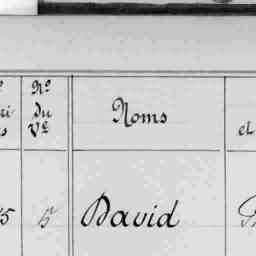 Nº
du
Vᵉ
Noms
et
5
David